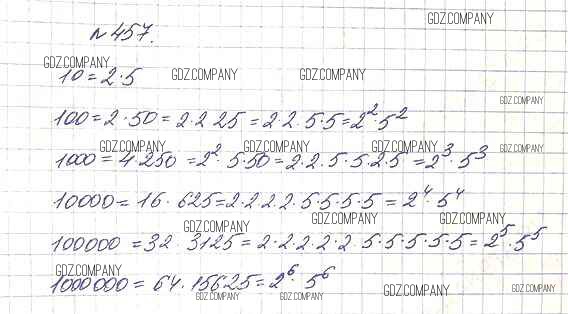 GDZ.COMPANY
№457.
GDZ.COMPANY
10 = 2·5 GDZ.COMPANY GDZ.COMPANY
GDZ.COMPANY
100 = 2·50 = 2·2 25 = 2·2·5·5 = 2²·5²
GDZ.COMPANY GDZ.COMPANY GDZ.COMPANY GDZ.COMPANY
1000 = 4·250 = 2²·5·50 = 2·2·5·5·2·5 = 2³·5³
10000 = 16·625 = 2·2·2·2·5·5·5·5 = 2⁴·5⁴
GDZ.COMPANY GDZ.COMPANY GDZ.COMPANY
100000 = 32·3125 = 2·2·2·2·2·5·5·5·5·5 = 2⁵·5⁵
GDZ.COMPANY
1000000 = 64·15625 = 2⁶·5⁶
GDZ.COMPANY GDZ.COMPANY GDZ.COMPANY GDZ.COMPANY